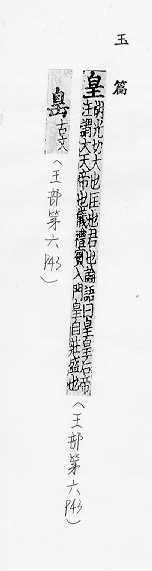 玉篇
皇 胡光切大也匡也君也論語曰皇皇后帝
注謂大天帝也儀禮賓入門皇自莊盛也
(王部第六 P43)
古文
(王部第六 P43)